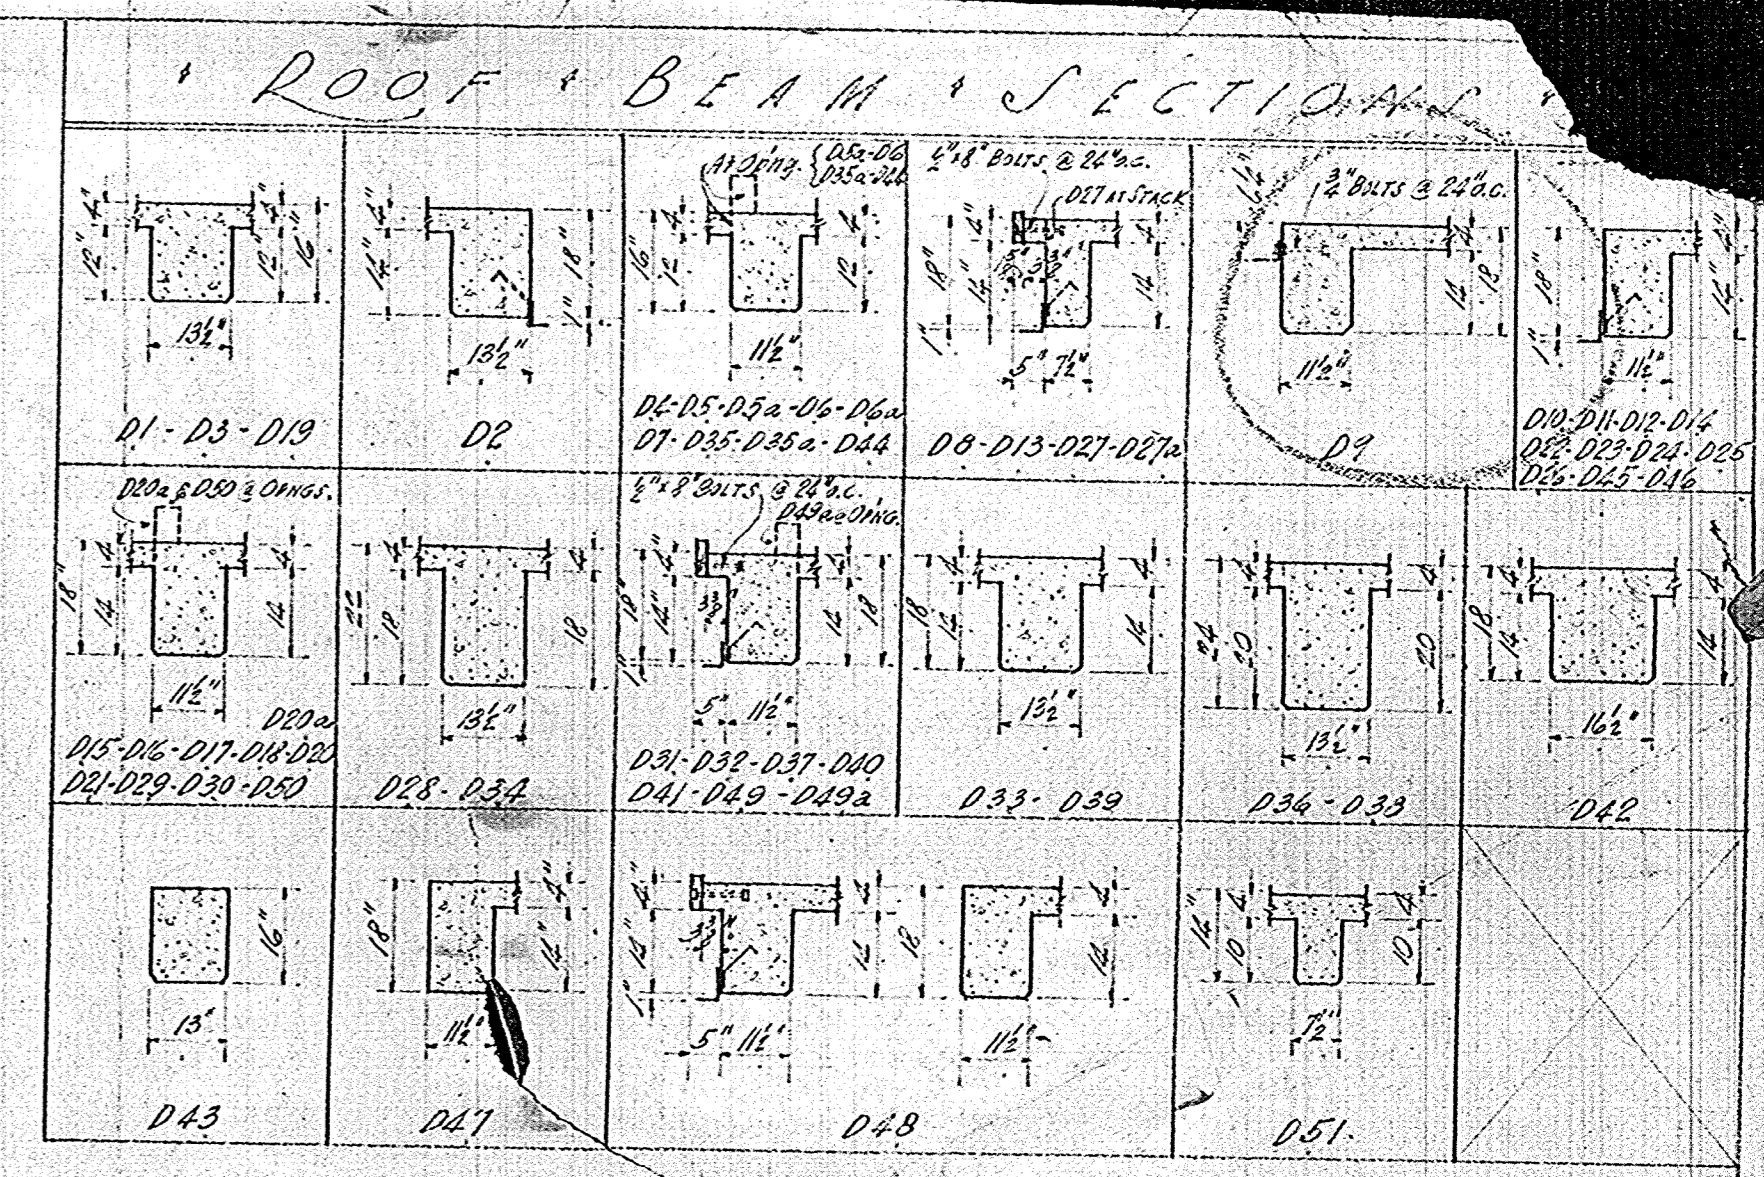 ROOF BEAM SECTIONS
4" 12" 4" 12" 16"
13½"
D1 - D3 - D19
4" 14" 18" 1"
13½"
D2
At Op'ng. { D5a-D6
D35a-D44
16" 4 12 4 12
11½"
D4-D5-D5a-D6-D6a
D7-D35-D35a-D44
½"x8" BOLTS @ 24" o.c.
D27 AT STACK
18" 4" 14" 1" 4 14
5" 7½"
D8-D13-D27-D27a
¾" BOLTS @ 24" O.C.
4 14 18
11½"
D9
18" 1" 4" 14"
11½"
D10-D11-D12-D14
D22-D23-D24-D25
D26-D45-D46
D20a & D50 @ OPNGS.
18" 4 14 4 14
11½"
D20a
D15-D16-D17-D18-D20
D21-D29-D30-D50
22 4 18 4 18
13½"
D28-D34
½"x8" BOLTS @ 24" o.c.
D49a @ OPNG.
18" 4" 14" 1" 4 14 18
5" 11½"
D31-D32-D37-D40
D41-D49-D49a
18 4 14 4 14
13½"
D33-D39
24 4 20 4 20
13½"
D36-D38
18 4 14 4 14
16½"
D42
16"
13"
D43
18" 4" 14"
11½"
D47
4" 14" 1" 4 14
5" 11½"
18 4 14
11½"
D48
14" 4 10" 4 10
7½"
D51.